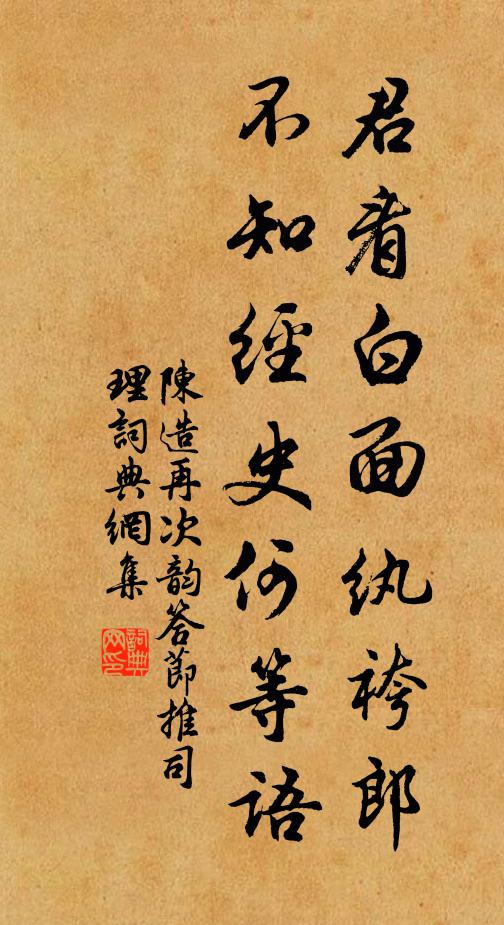 君看白面纨袴郎
不知經史何等語
陳造再次韵答節推司
理詞典網集
詞典网印